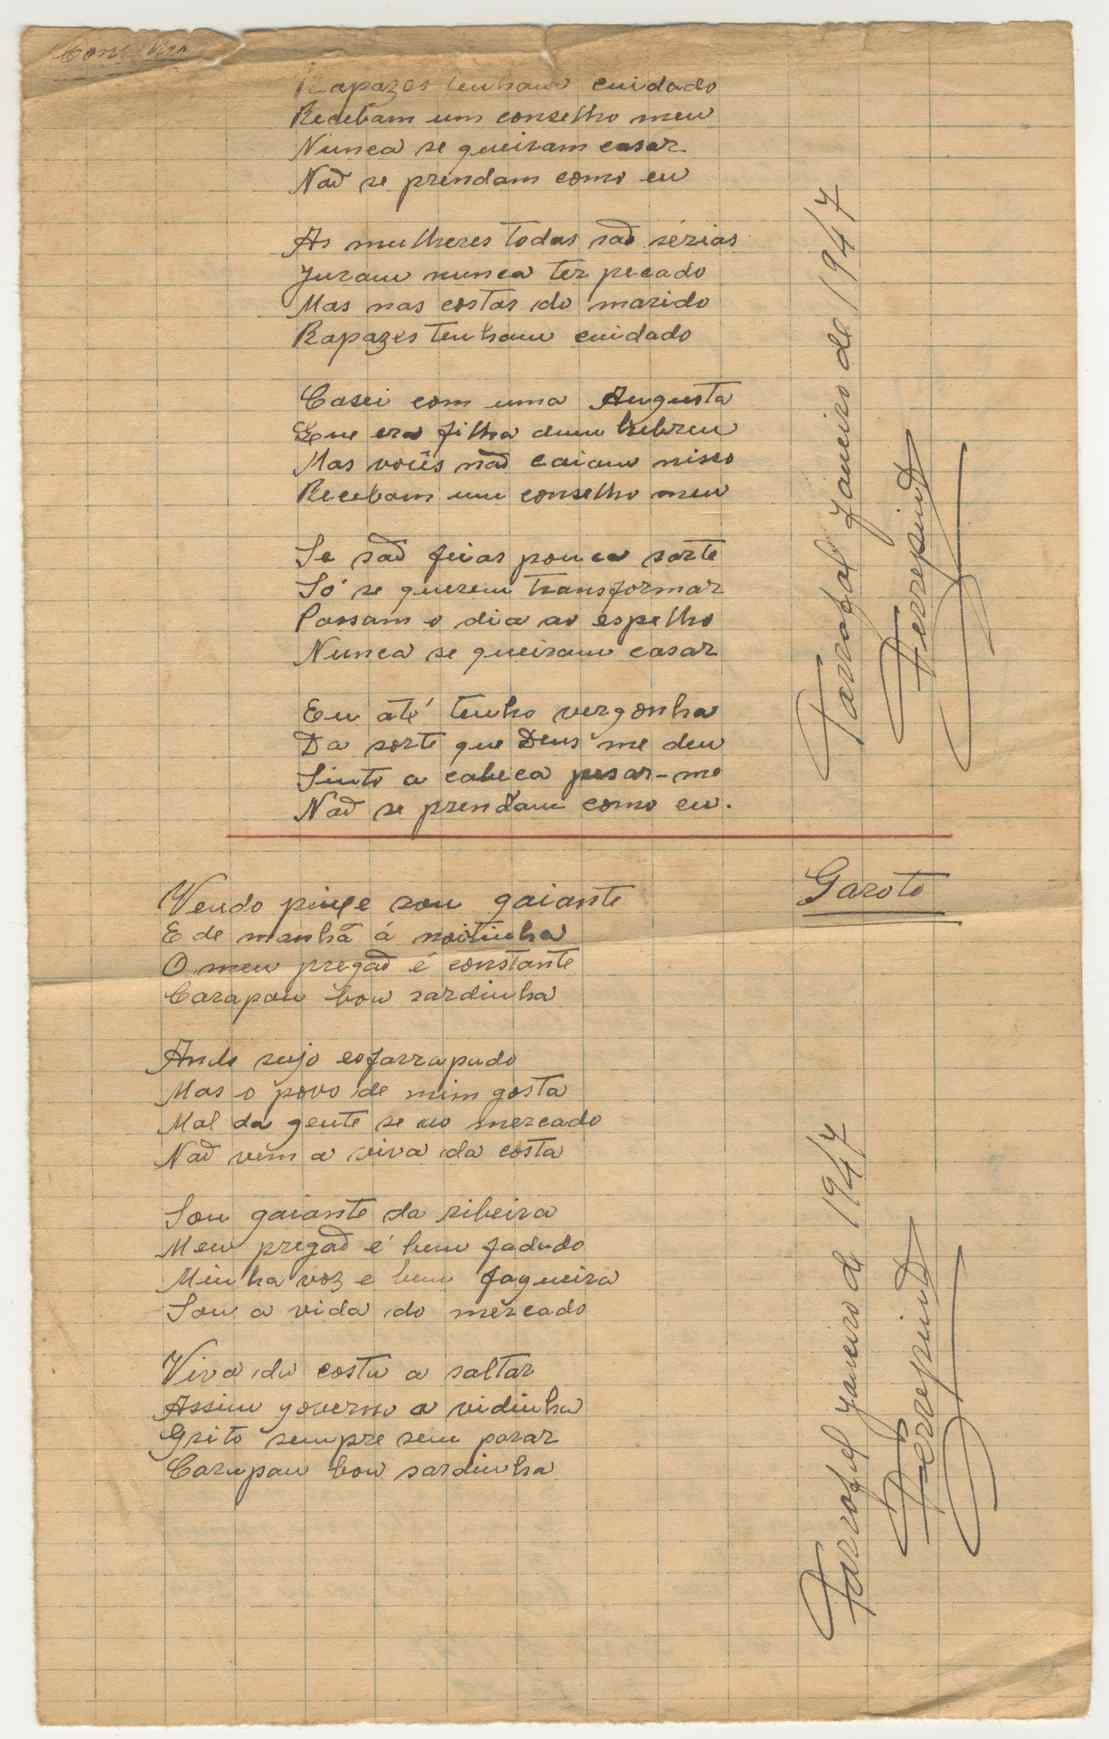 Conselho
Rapazes tenham cuidado
Recebam um conselho meu
Nunca se queiram casar
Naõ se prendam como eu
As mulheres todas saõ sérias
Juram nunca ter pecado
Mas nas costas do marido
Rapazes tenham cuidado
Casei com uma Augusta
Que era filha dum hebreu
Mas vocês naõ caiam nisso
Recebam um conselho meu
Se saõ feias pouca sorte
Só se querem transformar
Passam o dia ao espelho
Nunca se queiram casar
Eu até tenho vergonha
Da sorte que Deus me deu
Sinto a cabeca pesar-me
Naõ se prendam como eu.
Tarrafal Janeiro de 1947
Ferrepinto
Garoto
Vendo peixe sou gaiante
E de manhã á noitinha
O meu pregaõ é constante
Carapau bou sardinha
Ando sujo esfarrapado
Mas o povo de mim gosta
Mal da gente se ao mercado
Naõ vem a viva da costa
Sou gaiante da ribeira
Meu pregaõ é bem fadado
Minha voz e bem fagueira
Sou a vida do mercado
Viva da costa a saltar
Assim governo a vidinha
Grito sempre sem parar
Carapau bou sardinha
Tarrafal Janeiro de 1947
Ferrepinto